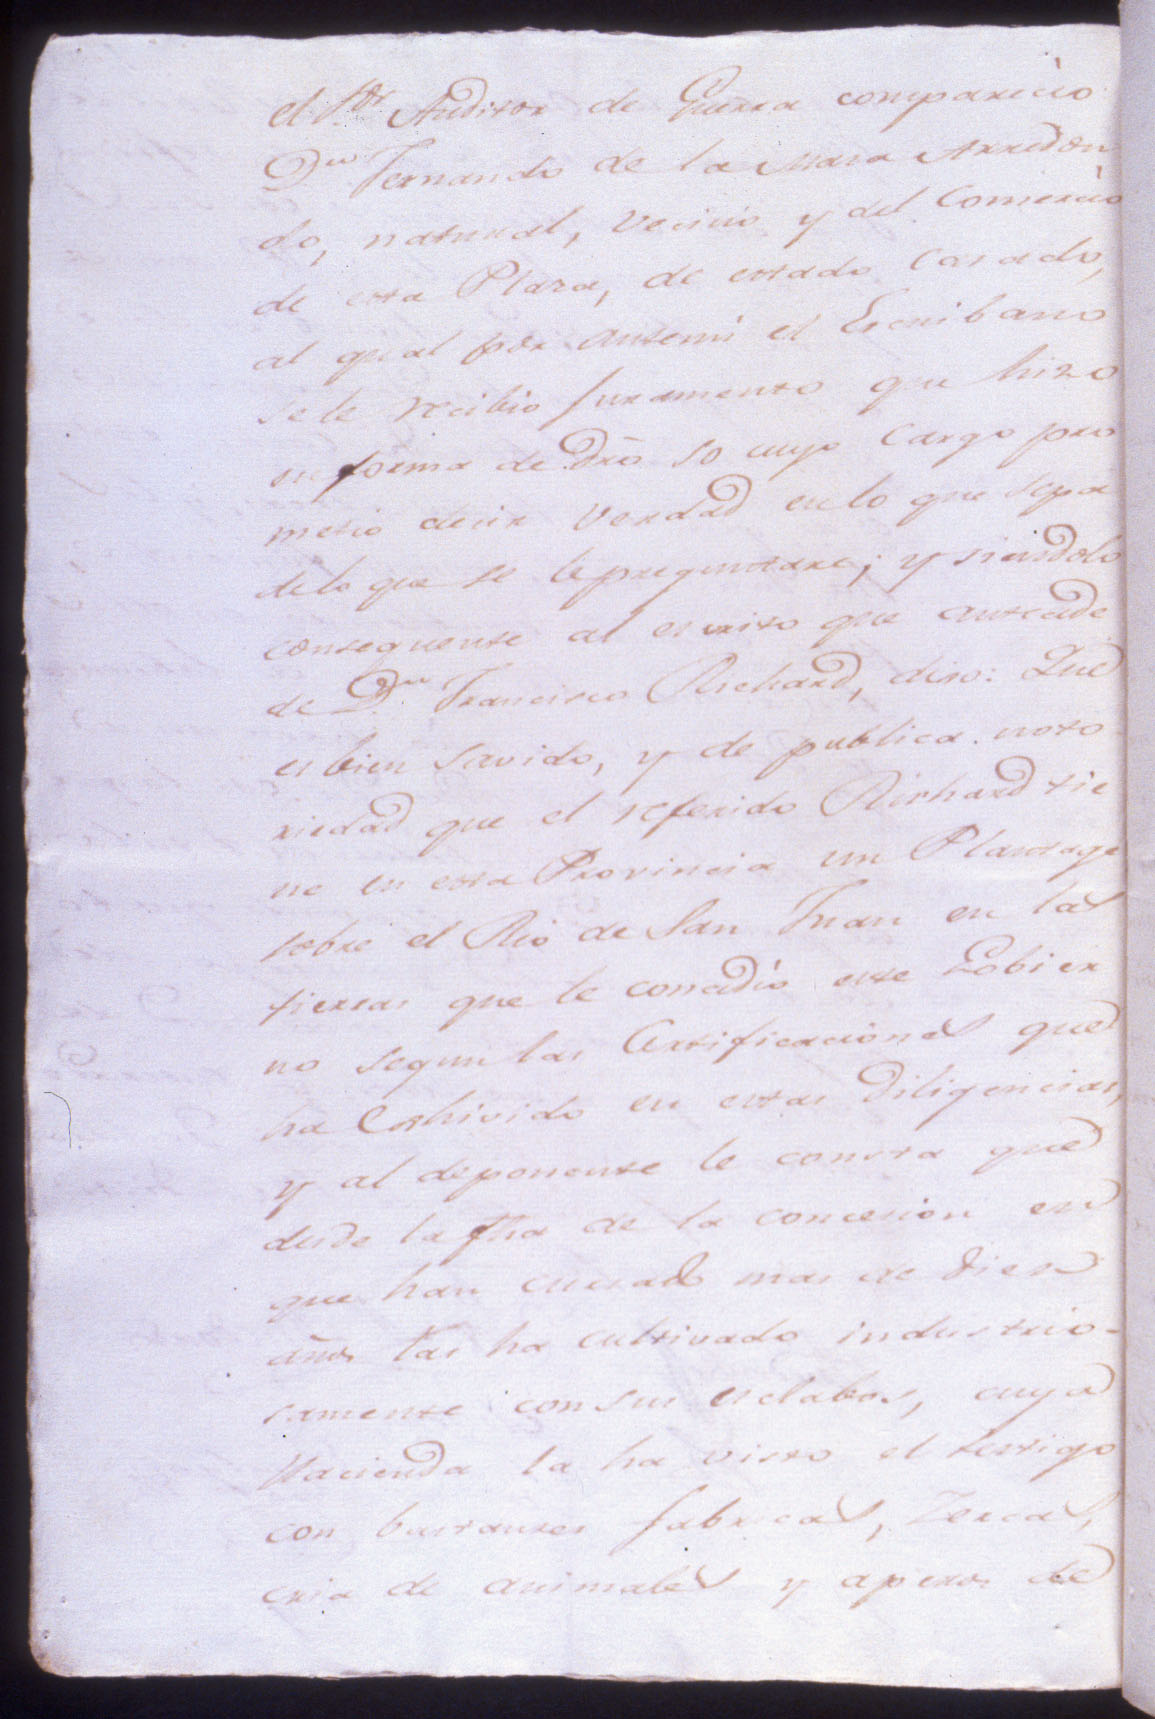 el S.or Auditor de Guerra comparecio
D.n Fernando de la Maza Arredon
do, natural, vecino y del Comercio
de esta Plaza, de estado Casado,
al qual por antemi el Escribano
se le recibio juramento que hizo
en forma de dro so cuyo Cargo pro
metio decir Verdad en lo que sepa
de lo que se le preguntare; y siendolo
consequente al escrito que antecede
de D.n Francisco Richard, dixo: Que
es bien savido, y de publica noto
riedad que el referido Richard tie
ne en esta Provincia un Plantage
sobre el Rio de San Juan en las
tierras que le concedió este Gobier
no segun las Certificaciones que
ha Exhivido en estas Diligencias,
y al deponente le consta que
desde la fha de la concesion en
que han cursado mas de Diez
años las ha cultivado industrio-
samente con sus esclabos, cuya
Hacienda la ha visto el testigo
con bastantes fabricas, Zercas,
cria de animales y aperos de